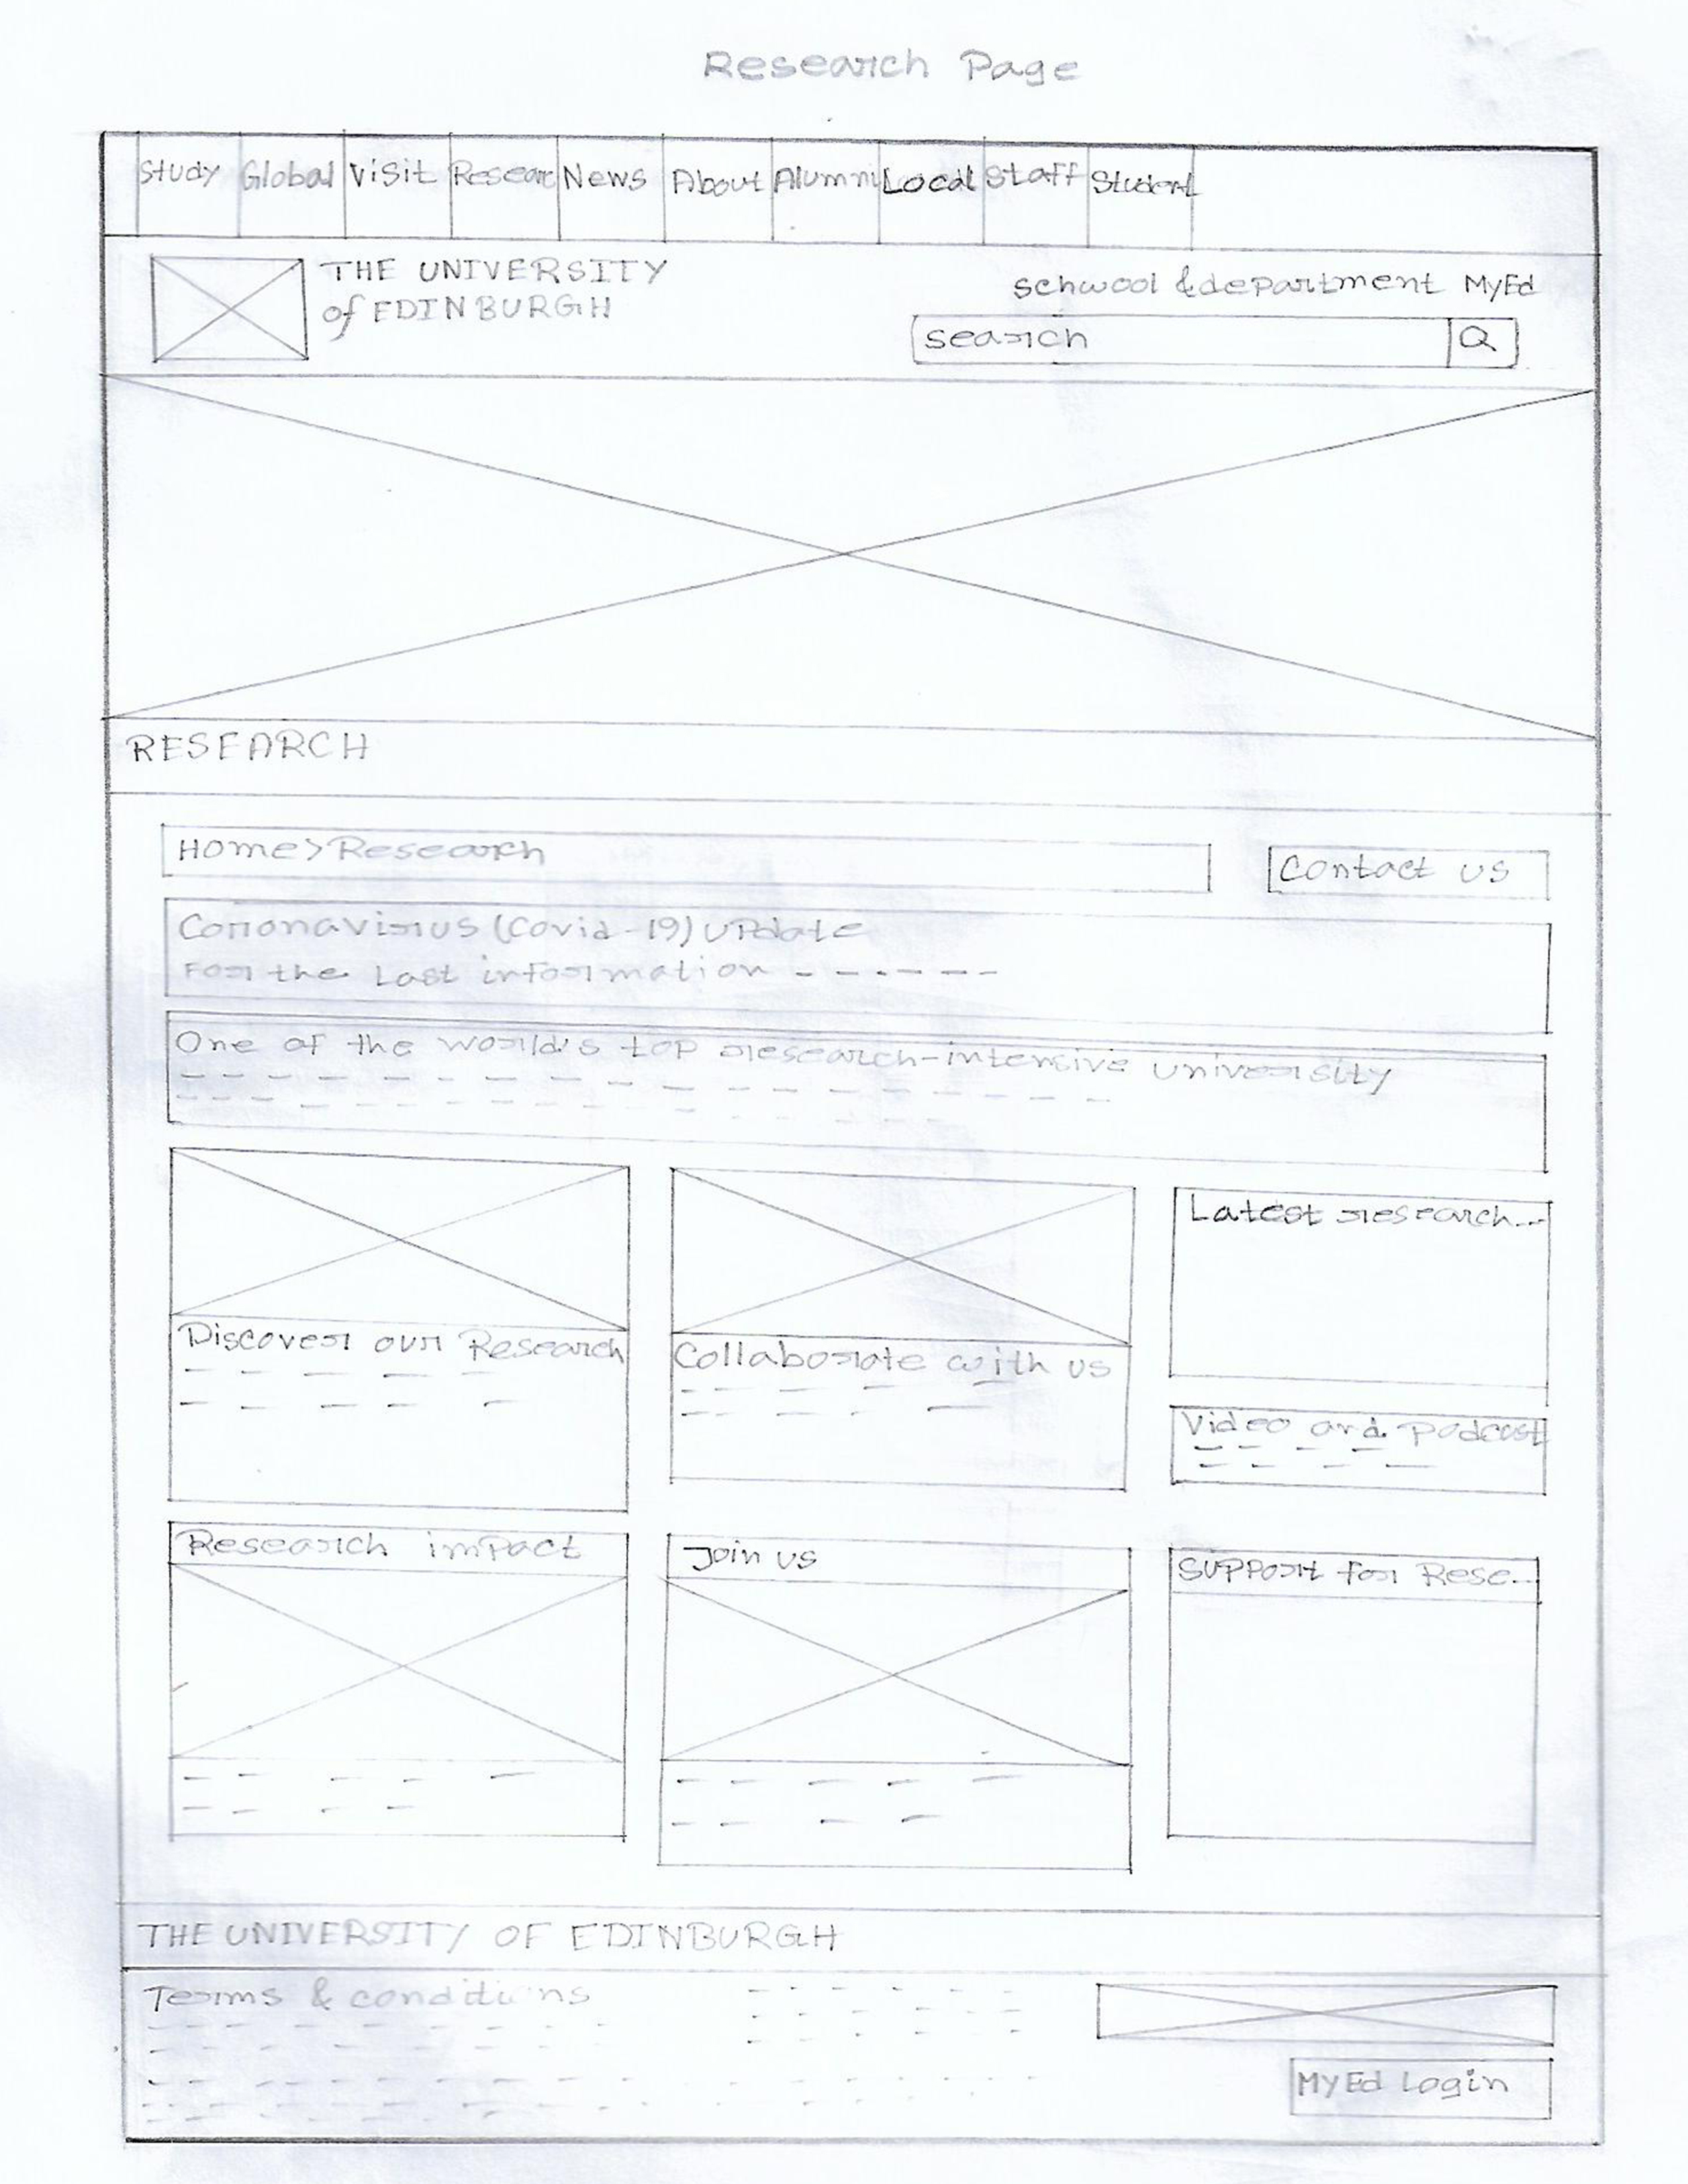 Research Page
Study Global Visit Researc News About Alumni Local Staff Student
THE UNIVERSITY
of EDINBURGH
schwool & department MyEd
search
RESEARCH
Home>Research
Contact us
Coronavirus (Covid-19) update
For the Last information - - - - - -
One of the world's top research-intensive university
Discover our Research
Collaborate with us
Latest research...
Video and podcast
Research impact
Join us
Support for Rese...
THE UNIVERSITY OF EDINBURGH
Terms & conditions
MyEd Login